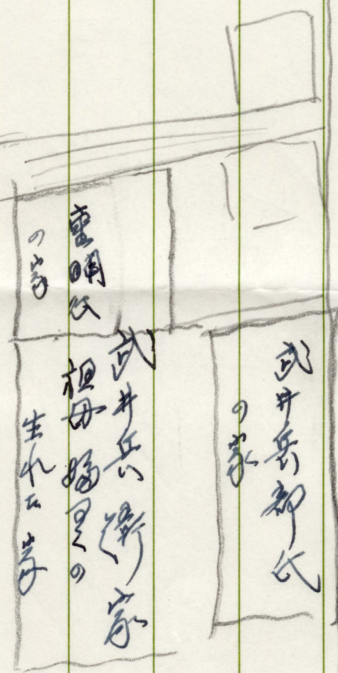 武井兵部氏
の家
武井兵衛家
祖母 の
生れた家
重明氏
の家